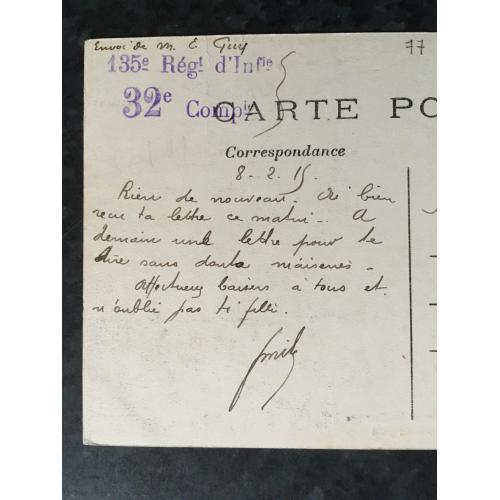 Envoi de M. E. Guy
77
135e Régt d'Infie
32e Compie
CARTE PO
Correspondance
8-2.15
Rien de nouveau. Ai bien
reçu ta lettre ce matin. A
demain une lettre pour te
dire sans doute
Affectueux baisers à tous et
n'oublie pas ti fille.
Emile